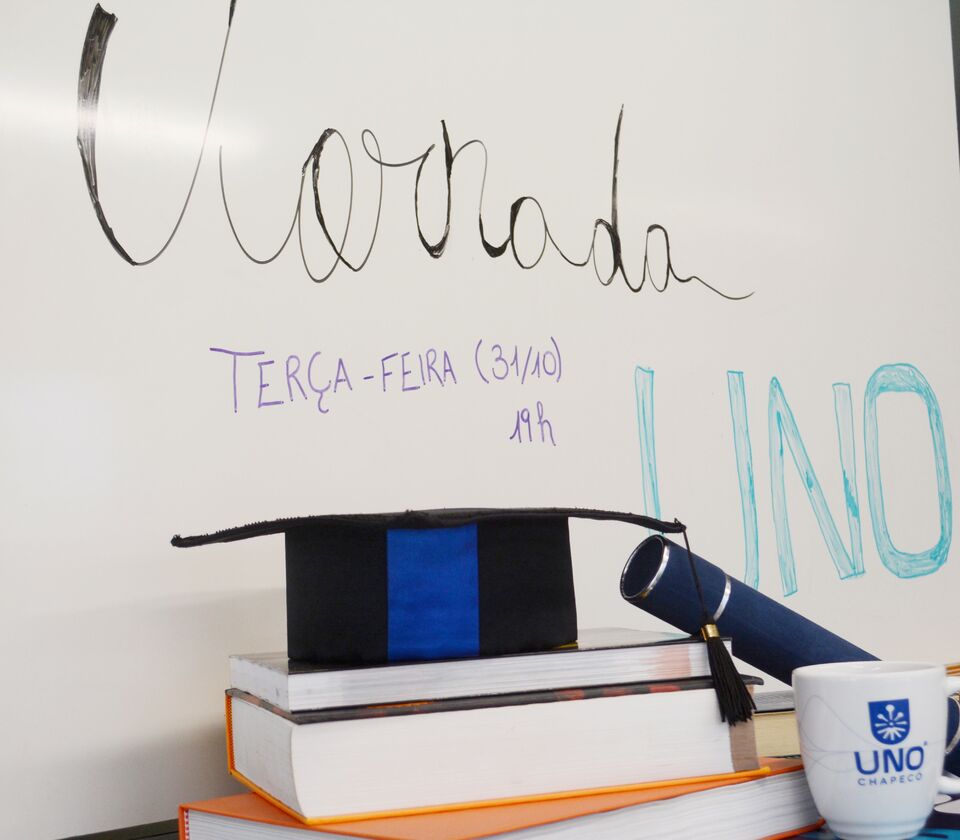 Jornada
TERÇA-FEIRA (31/10)
19h
UNO
UNO
CHAPECÓ